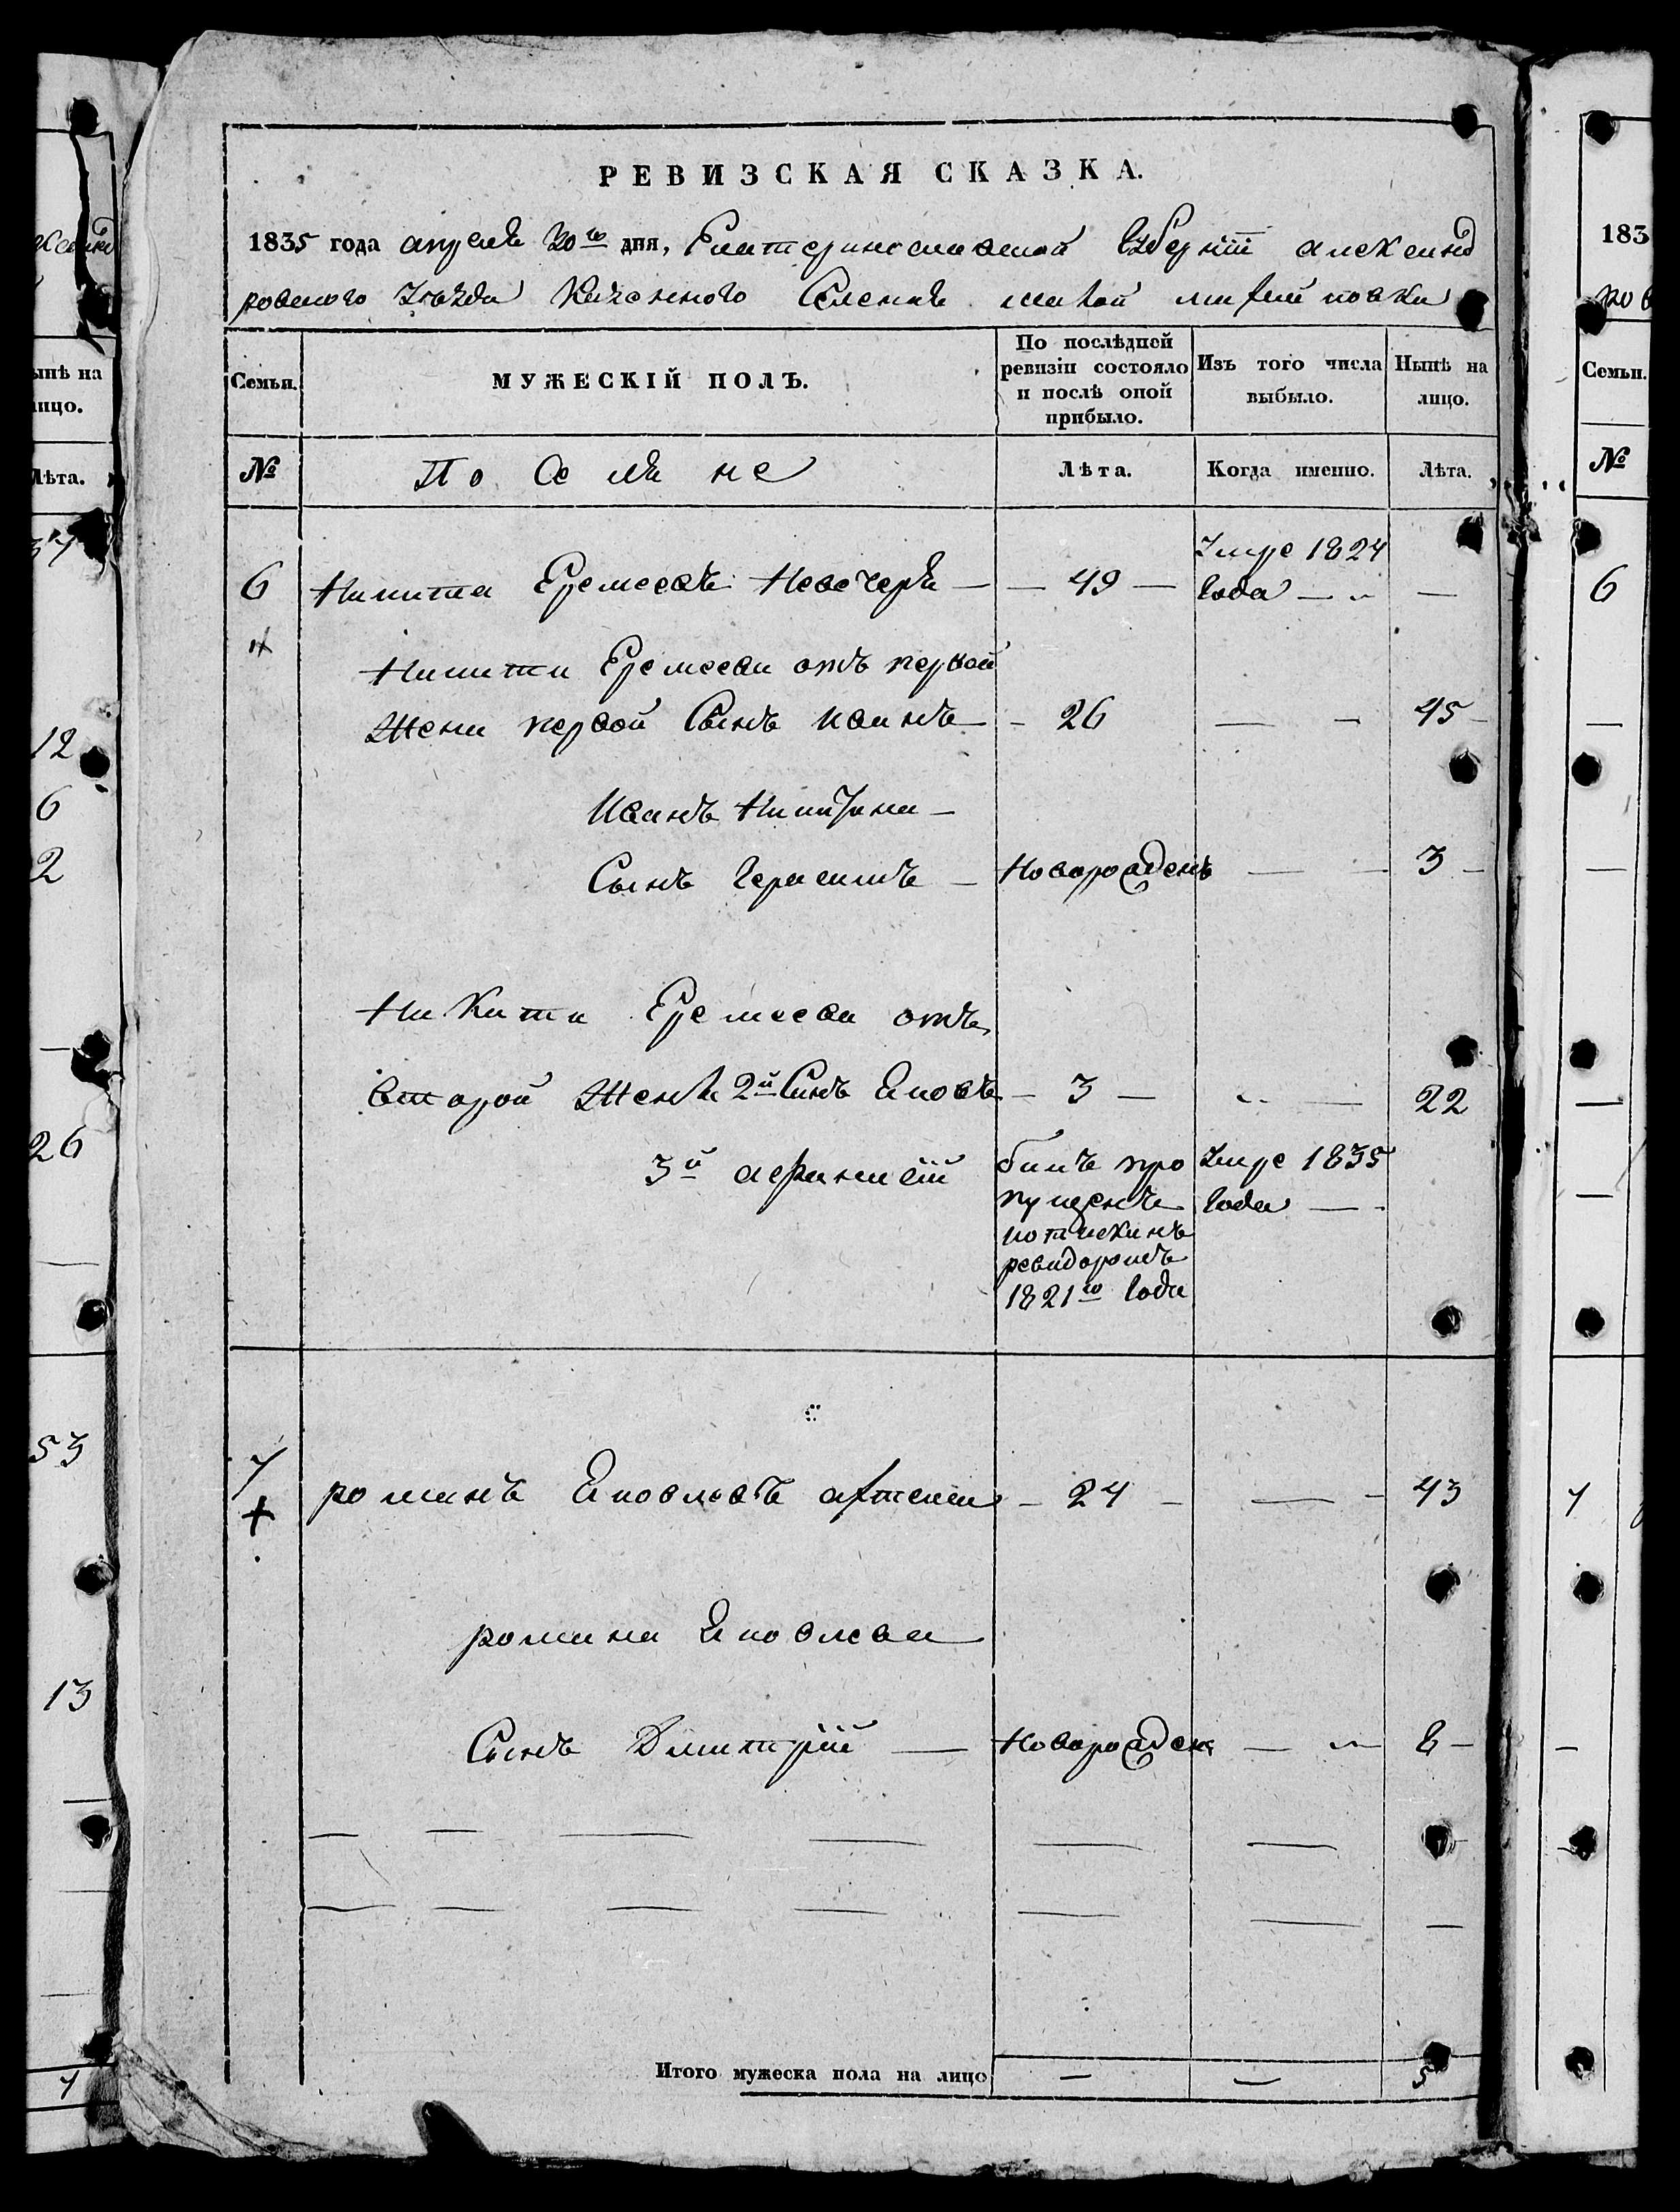 РЕВИЗСКАЯ СКАЗКА.
1835 года апреля 20го дня, Екатеринославской Губернїи александ
ровского Уезда Казенного Селенія малой михайловки
Семьи.
МУЖЕСКІЙ ПОЛЪ.
По послѣдней
ревизіи состояло
и послѣ оной
прибыло.
Изъ того числа
выбыло.
Нынѣ на
лицо.
№
Поселяне
Лѣта.
Когда именно.
Лѣта.
6 Никита Еремеевъ Невечеря — — 49 — Умре 1824
года — —
Никити Еремеева отъ первой
Жени первой Сынъ Иванъ — 26 — 45
Ивана Никитина —
Сынъ Герасимъ — Новорожденъ — 3 —
Никити Еремеева отъ
второй Жени 2й Синъ Яковъ — 3 — — 22
3й афанасїй билъ про
пущенъ
ревизоромъ
1821го года
Умре 1835
года —
7 романъ Яковлевъ — 24 — — 43
романа Яковлева
Синъ Дмитрїй — Новорожден — 8 —
Итого мужеска пола на лицо — — 5
ынѣ на
лицо.
Лѣта.
12
6
2
26
53
13
7
183
Семьи.
№
6
7